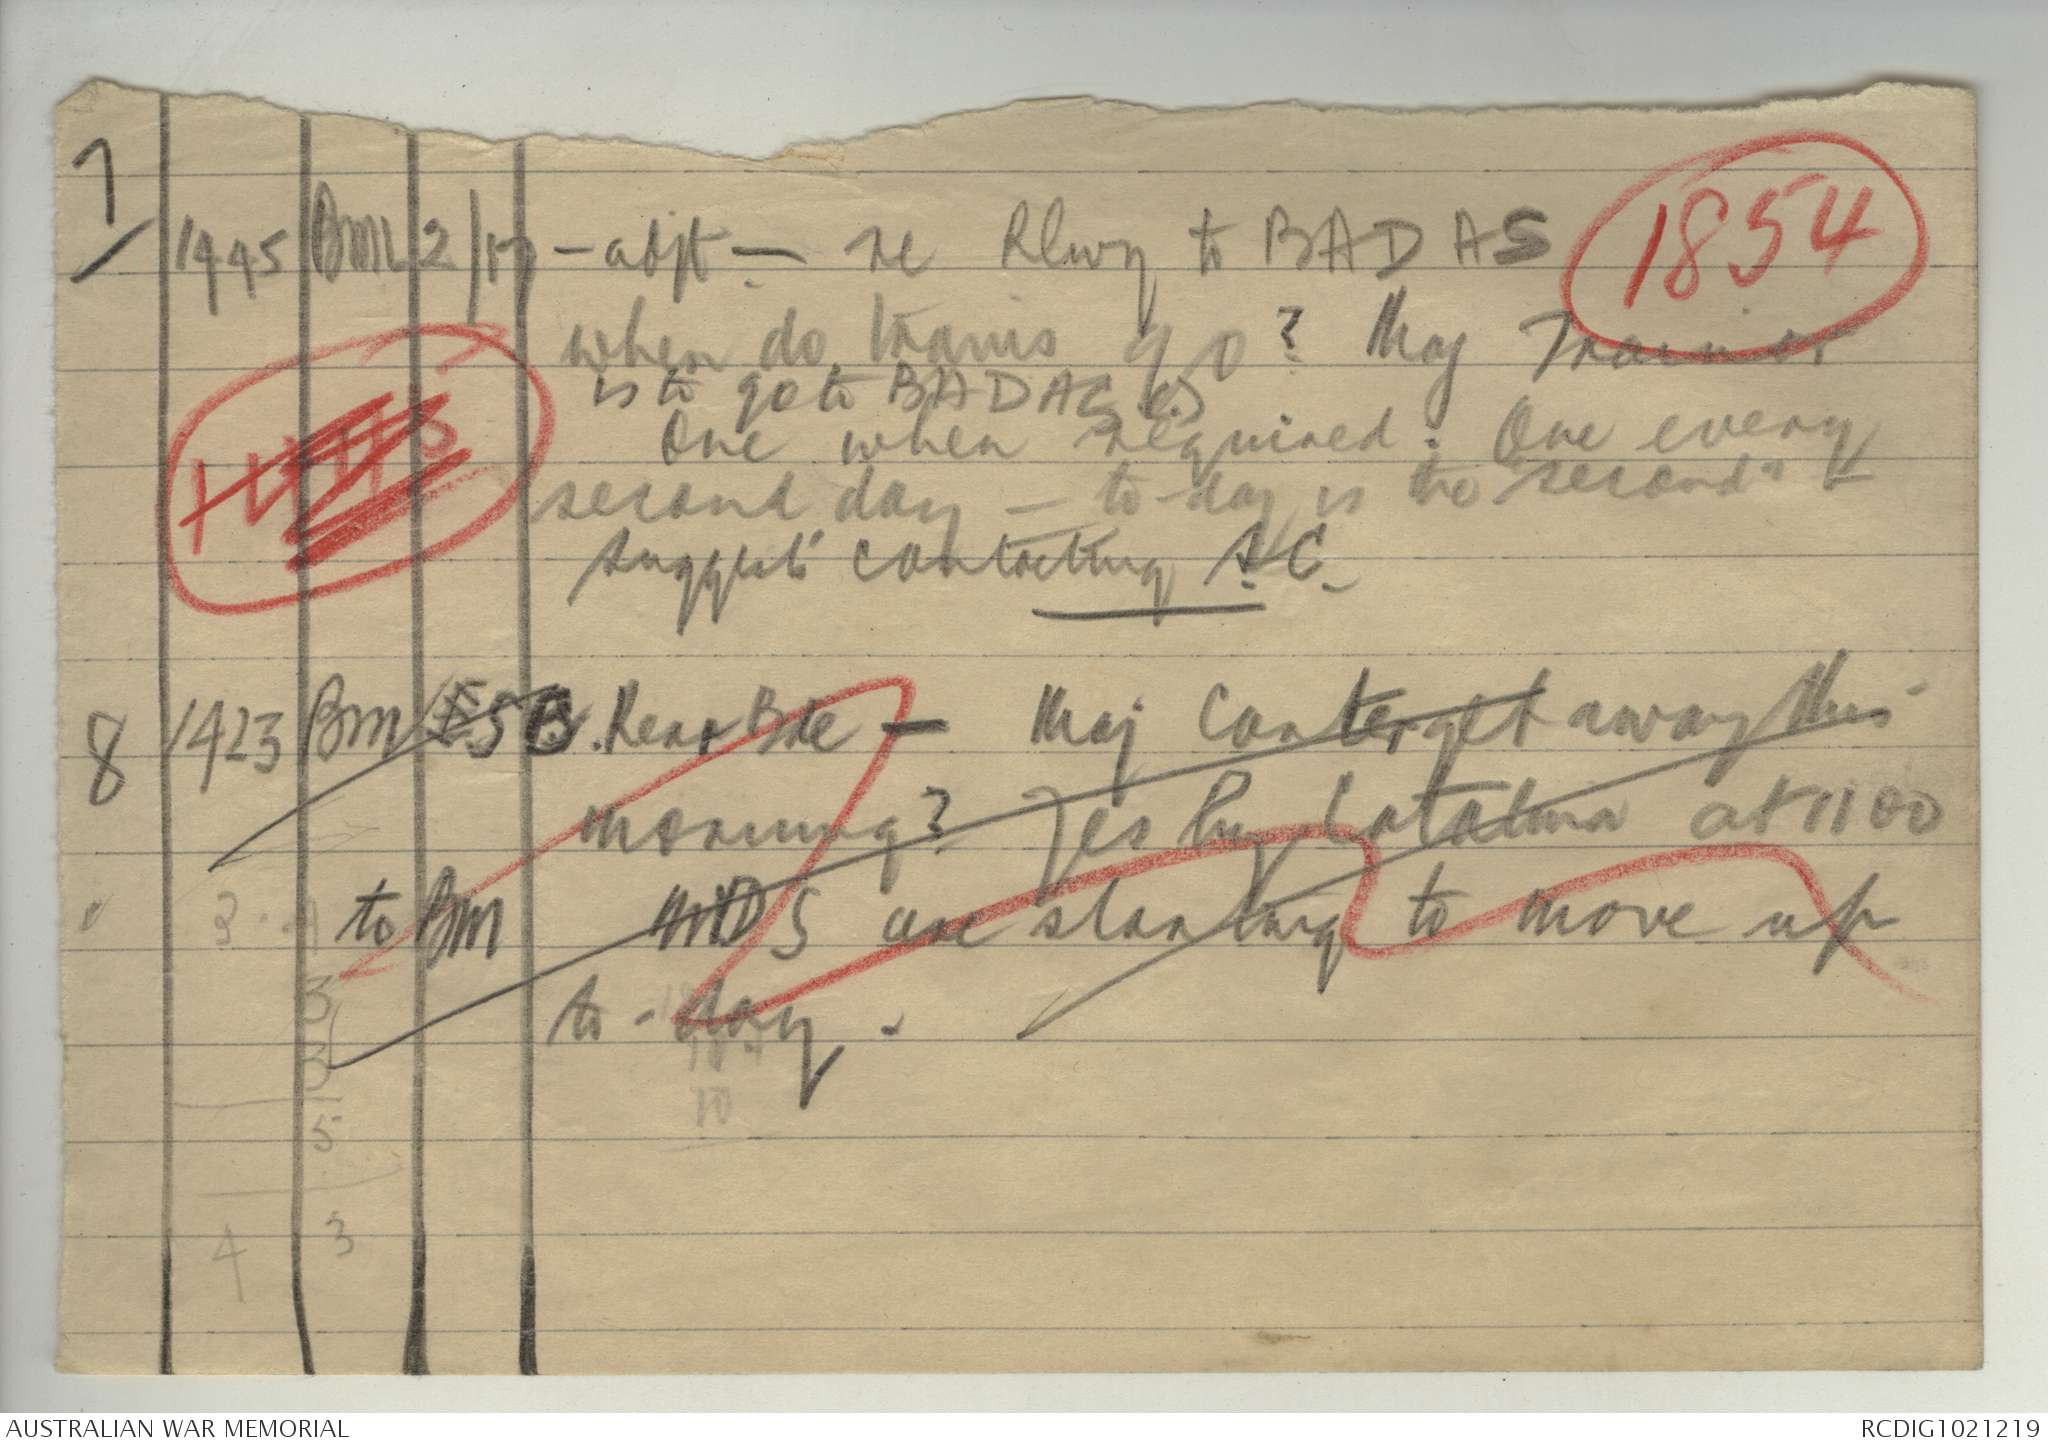 1854
7 1445 BM 2/17 - adjt - re Rlwy to BADAS
when do trains go? Maj Trainor
is to go to BADAS.
One when required. One every
second day - to-day is the "second" &
suggests contacting S.C.
8 1423 BM B. Rear Bde - Maj get away this
morning? Yes by Catalina at 1100
to BM are starting to move up
to-day.
3 4
3
3
5
4 3
10
AUSTRALIAN WAR MEMORIAL
RCDIG1021219